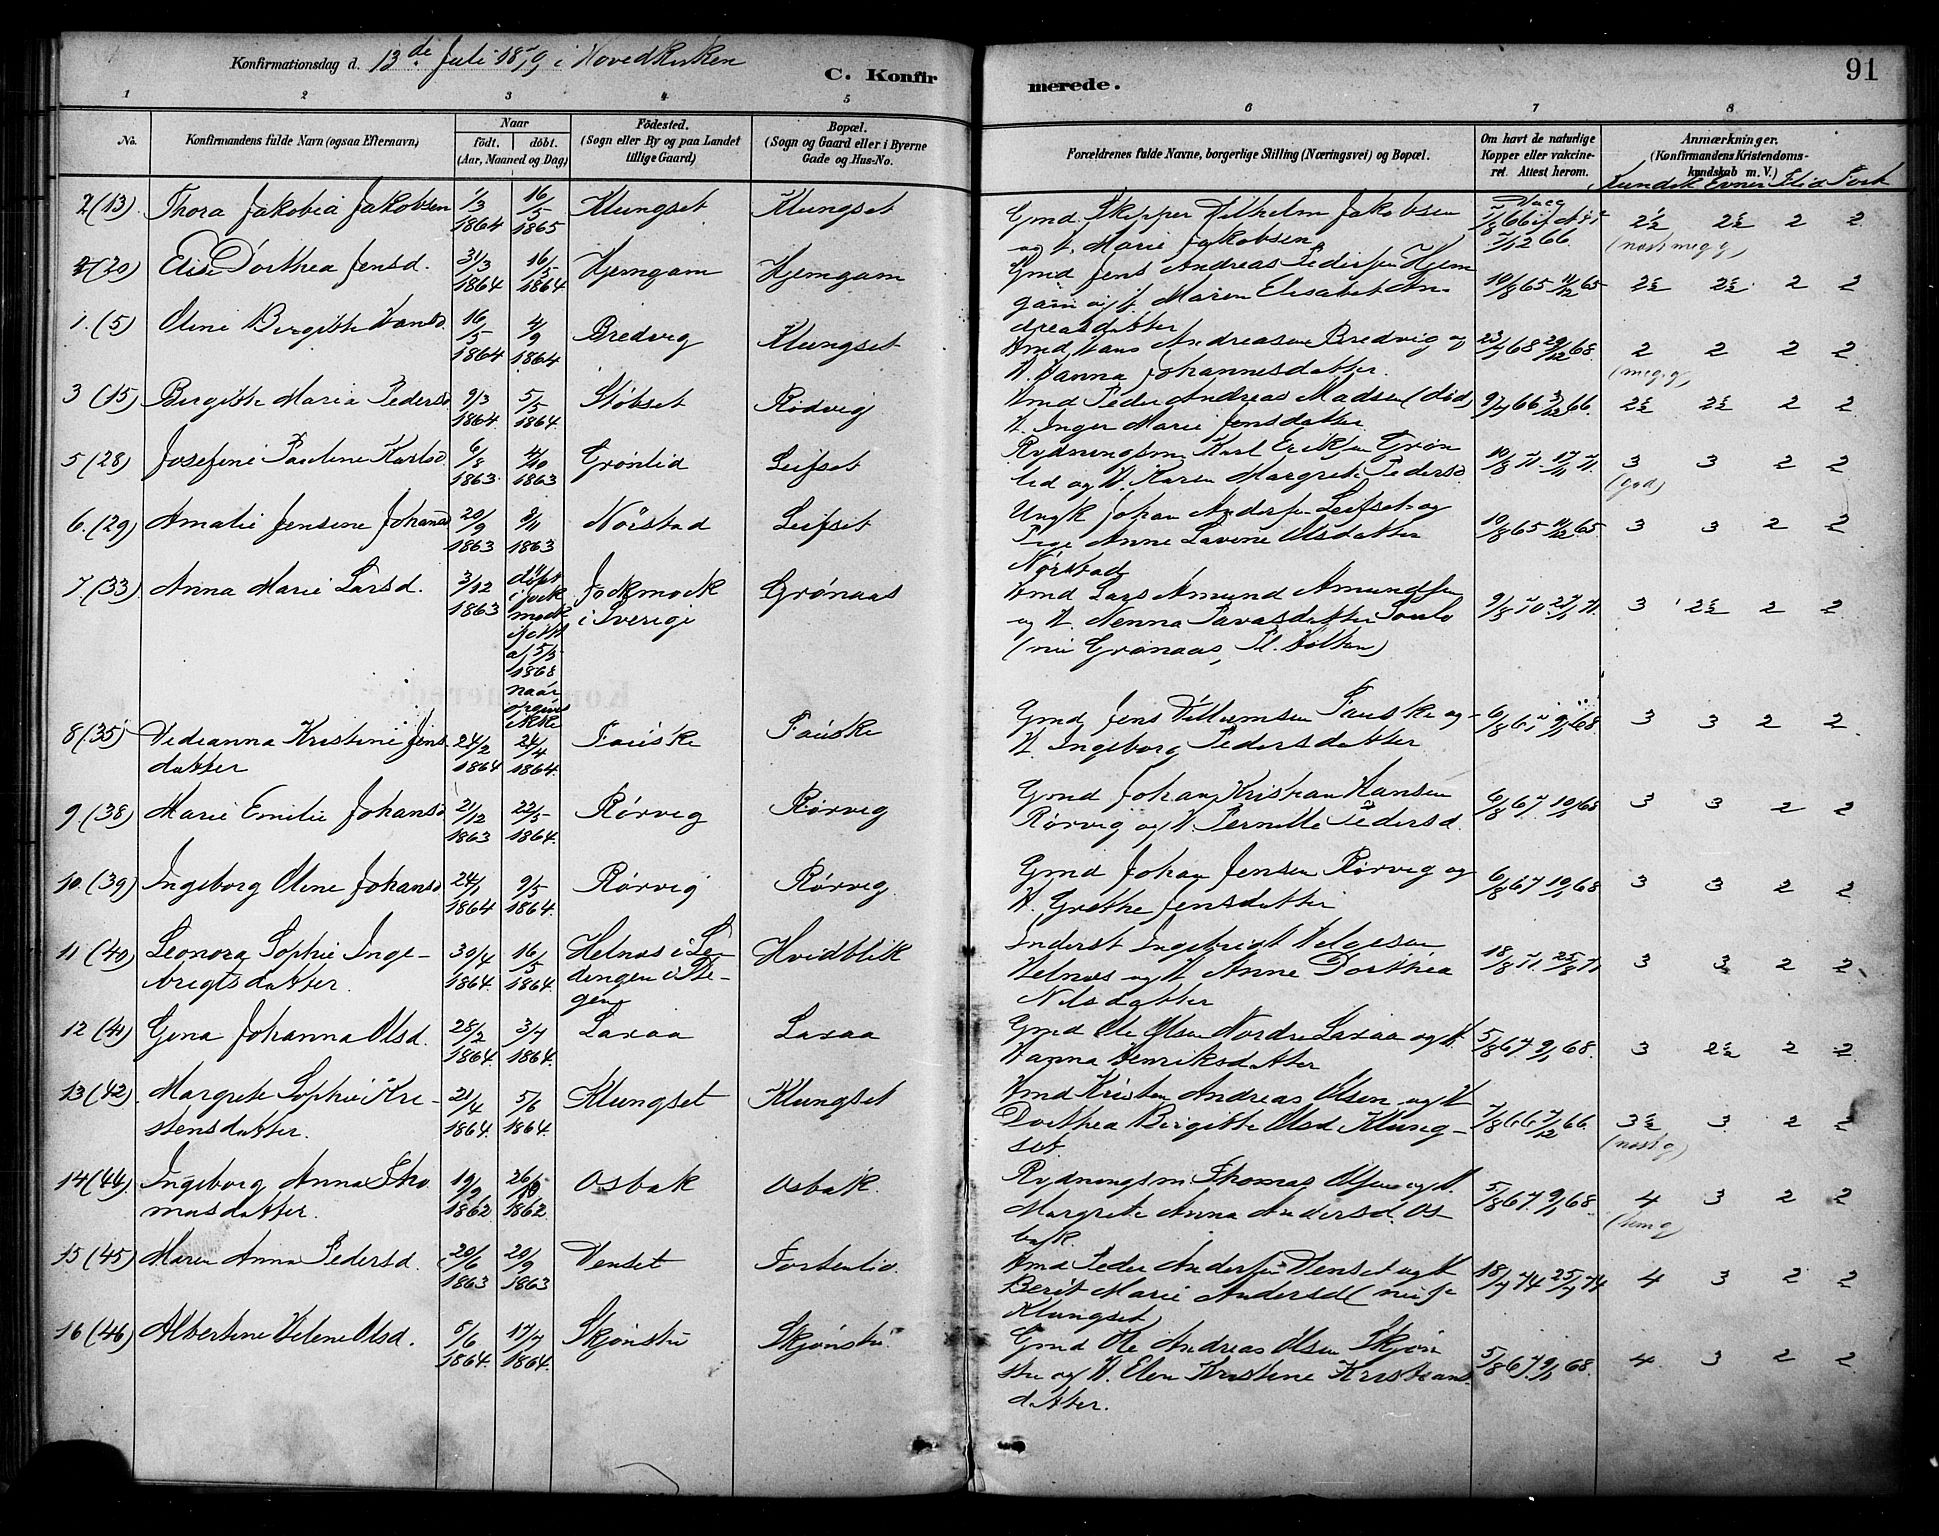 Konfirmationsdag d. 13de Juli 1879 i Hovedkirken
C. Konfirmerede.
91
1 2 3 4 5 6 7 8
No.
Konfirmandens fulde Navn (ogsaa Efternavn)
Naar
födt. döbt.
(Aar, Maaned og Dag)
Födested.
(Sogn eller By og paa Landet
tillige Gaard)
Bopæl.
(Sogn og Gaard eller i Byerne
Gade og Hus-No.
Forældrenes fulde Navne, borgerlige Stilling (Næringsvei) og Bopæl.
Om havt de naturlige
Kopper eller vakcine-
ret. Attest herom.
Anmærkninger.
(Konfirmandens Kristendoms-
kundskab m. V.)
Kundsk Evner Flid Forh
2 (13) Thora Jakobia Jakobsen 1/3 1864 16/5 1865 Klungset Klungset
Gmd. Skipper Vilhelm Jakobsen
og H. Marie Jakobsen
2½ 2½ 2 2
4 (20) Elise Dorthea Jensd. 31/3 1864 16/5 1864 Hjemgam Hjemgam
Gmd Jens Andreas Pedersen Hjem
gam og H. Maren Elisabet An-
dreasdatter
10/8 65 11/12 65 2½ 2½ 2 2
1. (5) Oline Birgitte Hansd. 16/5 1864 4/9 1864 Bredvig Klungset
Hmd Hans Andreasen Bredvig og
H. Hanna Johannesdatter.
23/7 68 29/12 68. 2 2 2 2
(meg. g)
3 (15) Birgitte Maria Pedersd 9/3 1864 5/5 1864. Støbset Rødvig
Hmd Peder Andreas Madsen (død)
H. Inger Marie Jensdatter
9/7 66 3/12 66. 2½ 2½ 2 2
5 (28) Josefine Pauline Karlsd. 6/8 1863 4/10 1863 Grønlid Leifset
Rydningsm Karl Eriksen Grøn
lid og H. Karen Margrete Pedersd
10/8 71. 17/11 71. 3 3 2 2
(god)
6. (29) Amalie Jensine Johansd 20/9 1863 8/11 1863 Nörstad Leifset
Ungk Johan Andersen Leifset og
Pige Anne Lavine Olsdatter
Nørstad
10/8 65 11/12 65. 3 3 2 2
7 (33) Anna Marie Larsd. 3/12 1863
døbt
i Jock
mock
ifølge
af 5/3
1868
naar
opgives
ikke
Jockmock
i Sverige
Grønaas
Hmd Lars Amund Amundsen
og H. Nenna Pavalsdatter
(nu Grønaas,
9/8 70. 27/1 71. 3 2½ 2 2
8 (35) Vedianna Kristine Jens
datter
24/2 1864 24/4 1864. Fauske Fauske
Gmd Jens Villumsen Fauske og
H. Ingeborg Pedersdatter
6/8 67 9/1 68 3 3 2 2
9 (38) Marie Emilie Johansd 21/12 1863 22/5 1864. Rørvig Rørvig
Gmd Johan Kristian Hansen
Rørvig og H. Pernille Pedersd.
6/8 67. 10/1 68 3 3 2 2
10. (39) Ingeborg Oline Johansd 24/1 1864 9/5 1864. Rørvig Rørvig.
Gmd Johan Jensen Rørvig og
H. Grethe Jensdatter
6/8 67 10/1 68 3 3 2 2
11 (40) Leonora Sophie Inge-
brigtsdatter.
30/4 1864. 16/5 1864. Helnes i Lø-
dingen
Hvidblik
Inderst Ingebrigt Helgesen
Helnes og H Anne Dorthea
Nilsdatter
18/8 71. 25/8 71 3 3 2 2
12 (41) Gina Johanna Olsd. 28/2 1864. 3/7 1864. Laxaa Laxaa
Gmd Ole Olsen Nordre Laxaa og H.
Hanna Henriksdatter
5/8 67 9/1 68. 3 2½ 2 2
13 (42) Margrete Sophie Kri-
stensdatter.
21/4 1864. 5/6 1864. Klungset Klungset
Hmd Kristen Andreas Olsen og H
Dorthea Birgitte Olsd Klung-
set.
7/8 66 7/12 66. 3½ 3 2 2
14 (44) Ingeborg Anna Tho
masdatter.
19/9 1862 26/10 1862. Osbak Osbak.
Rydningsm. Thomas Olsen og H.
Margrete Anna Andersd. Os
bak.
5/8 67. 9/1 68 4 3 2 2
15 (45) Maren Anna Pedersd. 20/6 1863 20/9 1863 Venset Forbenlid.
Hmd Peder Andersen Venset og H
Berit Marie Andersd (nu p.
Klungset)
18/7 74 25/7 74 4 3 2 2
16 (46) Albertine Helene Olsd. 5/6 1864. 17/7 1864. Skjønstu Skjønstu.
Gmd Ole Andreas Olsen Skjøn
stu og H. Elen Kristine Kristians
datter.
5/8 67. 9/1 68. 4 3 2 2